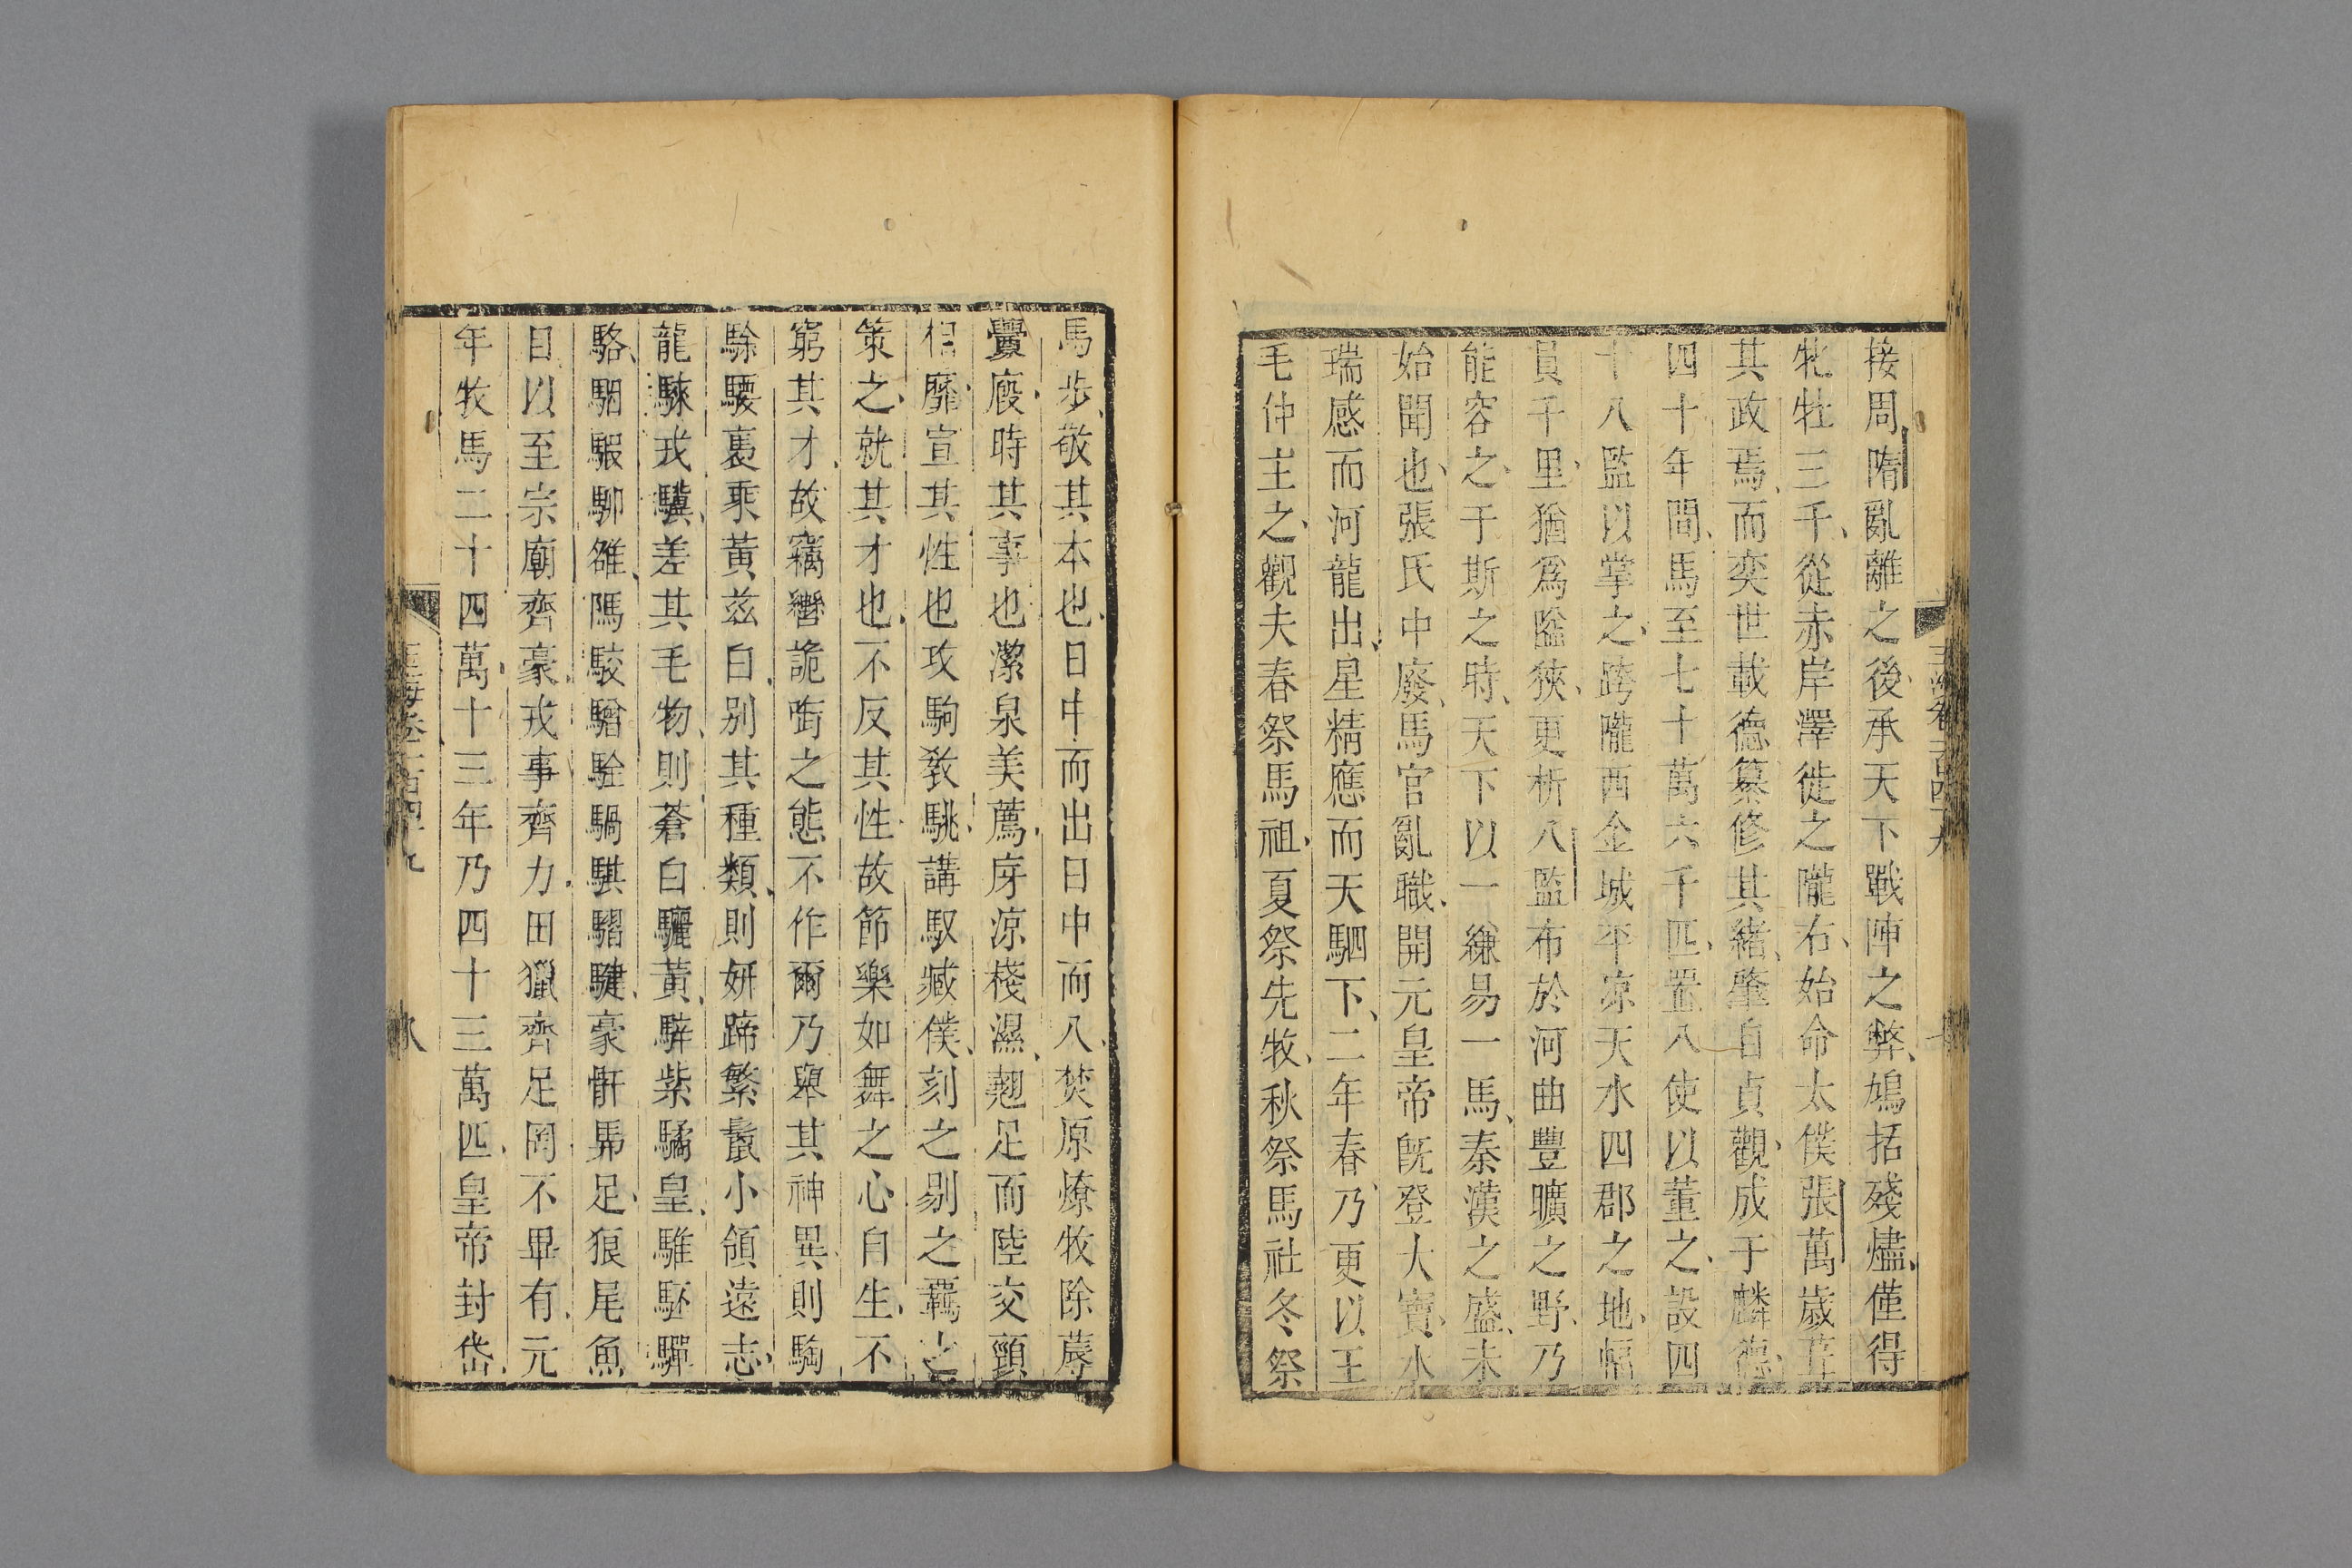 接周隋亂離之後承天下戰陣之弊鳩括殘燼僅得
牝牡三千從赤岸澤徙之隴右始命太僕張萬歲葺
其政焉而奕世載德纂修其緒肇自貞觀成于麟德
四十年間馬至七十萬六千匹置八使以董之設四
十八監以掌之跨隴西金城平涼天水四郡之地幅
員千里猶為隘狹更析八監布於河曲豐曠之野乃
能容之于斯之時天下以一縑易一馬秦漢之盛未
始聞也張氏中廢馬官亂職開元皇帝旣登大寶水
瑞感而河龍出星精應而天駟下二年春乃更以王
毛仲主之觀夫春祭馬祖夏祭先牧秋祭馬社冬祭
馬步敬其本也日中而出日中而八焚原燎牧除蓐
釁廄時其事也潔泉美薦庌涼棧濕翹足而陸交頸
相靡宣其性也攻駒敎駣講馭臧僕刻之剔之羈之
策之就其才也不反其性故節樂如舞之心自生不
窮其才故竊轡詭銜之態不作爾乃舉其神異則騊
駼騕褭乘黃茲白别其種類則妍蹄繁鬛小領遠志
龍騋戎驥差其毛物則蒼白驪黃騂紫驈皇騅駓驒
駱駰騢駵雒䣕駮驓駩騧騏騽騝豪骭馵足狼尾魚
目以至宗廟齊豪戎事齊力田獵齊足罔不畢有元
年牧馬二十四萬十三年乃四十三萬匹皇帝封岱